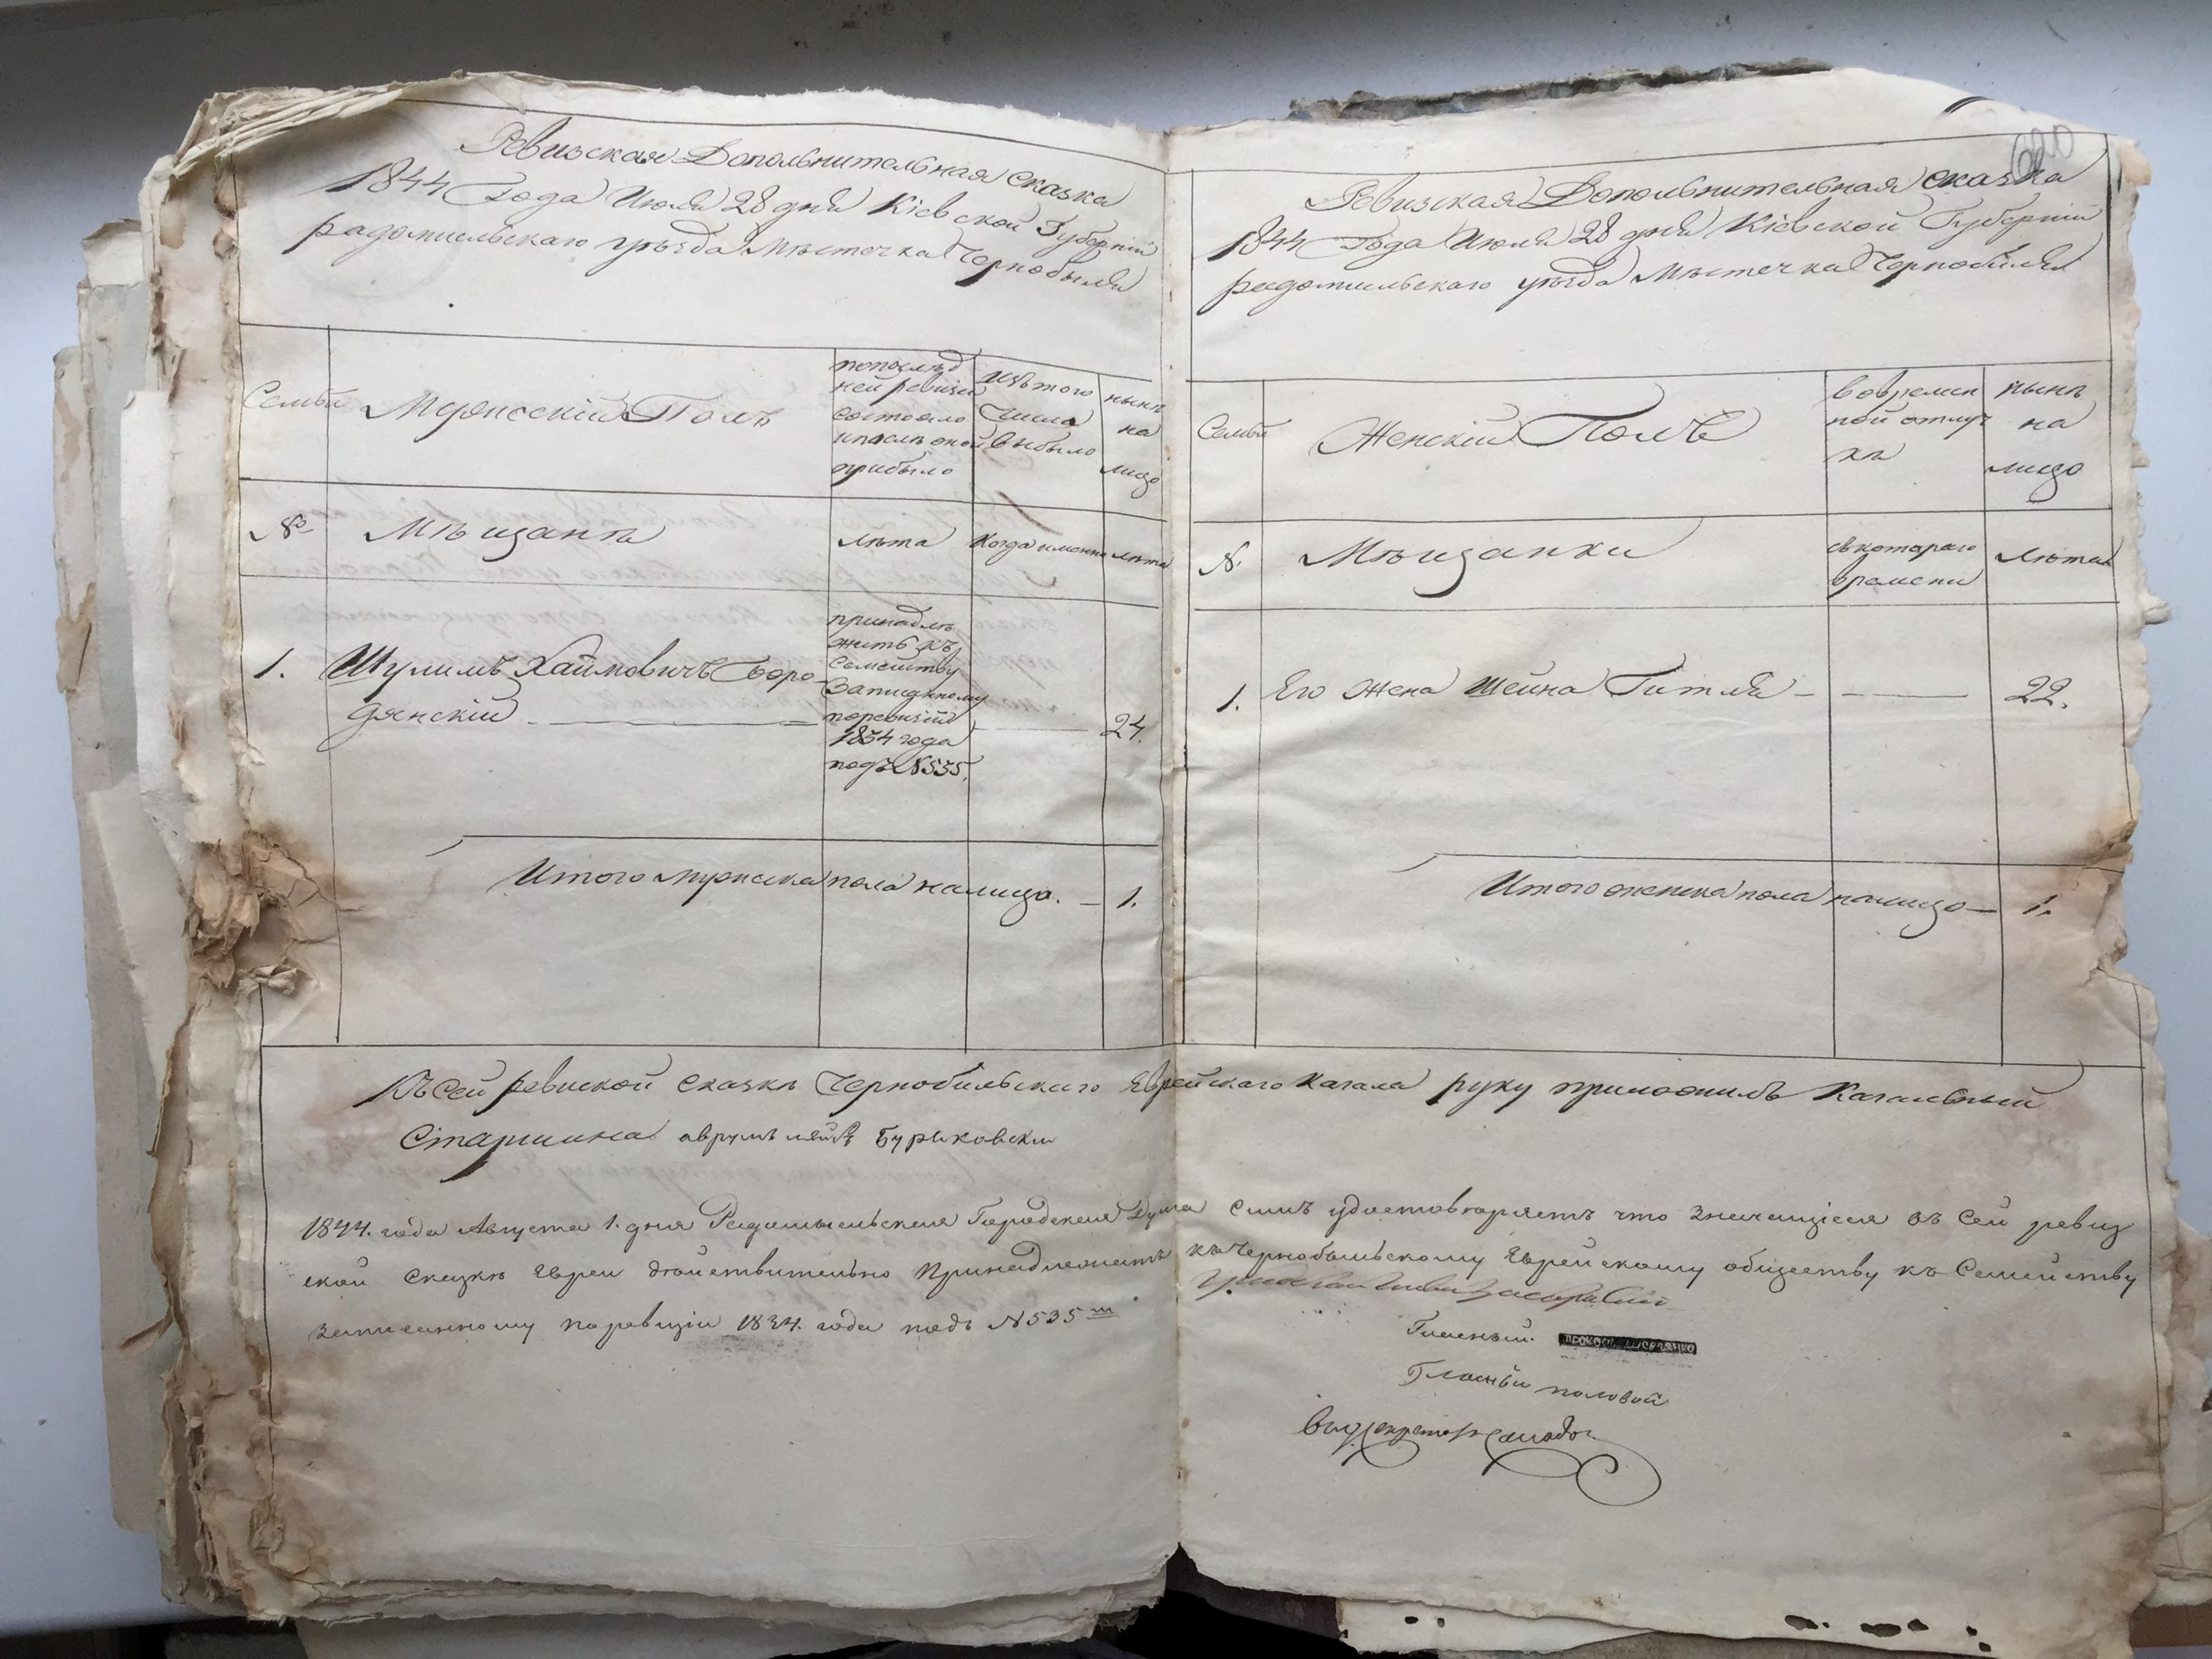 Ревизская Дополнительная сказка
1844 Года Июля 28 дня Кіевской Губерніи
радомысльскаго уѣзда Мѣстечка Чернобыля
Семьи
Мужескій Полъ
попослѣд
ней ревизіи
состояло
ипослѣ оной
прибыло
Изътого
Числа
выбыло
нынѣ
на
лицо
№
Мѣщанѣ
лѣта
когда имянно
лѣта
1.
Шулимъ Хаймовичъ Боро-
дянскій
принадлѣ
житъ къ
семейству
Записаному
поревизіи
1834 года
подъ №535.
24.
Итого мужеска пола налицо. — 1.
620
Ревизская Дополнительная сказка
1844 Года Июля 28 дня Кіевской Губерніи
радомысльскаго уѣзда Мѣстечка Чернобиля
Семьи
Женскій Полъ
вовремен
ной отлуч
кѣ
нынѣ
на
лицо
№
Мѣщанки
съкотораго
времени
лѣта
1.
Его жена Шейна Гитля — — 22.
Итого женска пола налицо — 1.
Къ Сей ревиской сказкѣ Чернобильскаго Еврейскаго Кагала руку приложилъ Кагальный
Старшина аврумъ Бурыковски
1844. года Августа 1. дня Радомысльская Городская Дума симъ удостовѣряетъ что значущіеся въ сей ревиз
ской сказкѣ Евреи действительно принадлежатъ къ Чернобыльскому Еврейскому обществу къ Семейству
записанному поревизіи 1834. года подъ №535ш
Гласный
Гласный половой